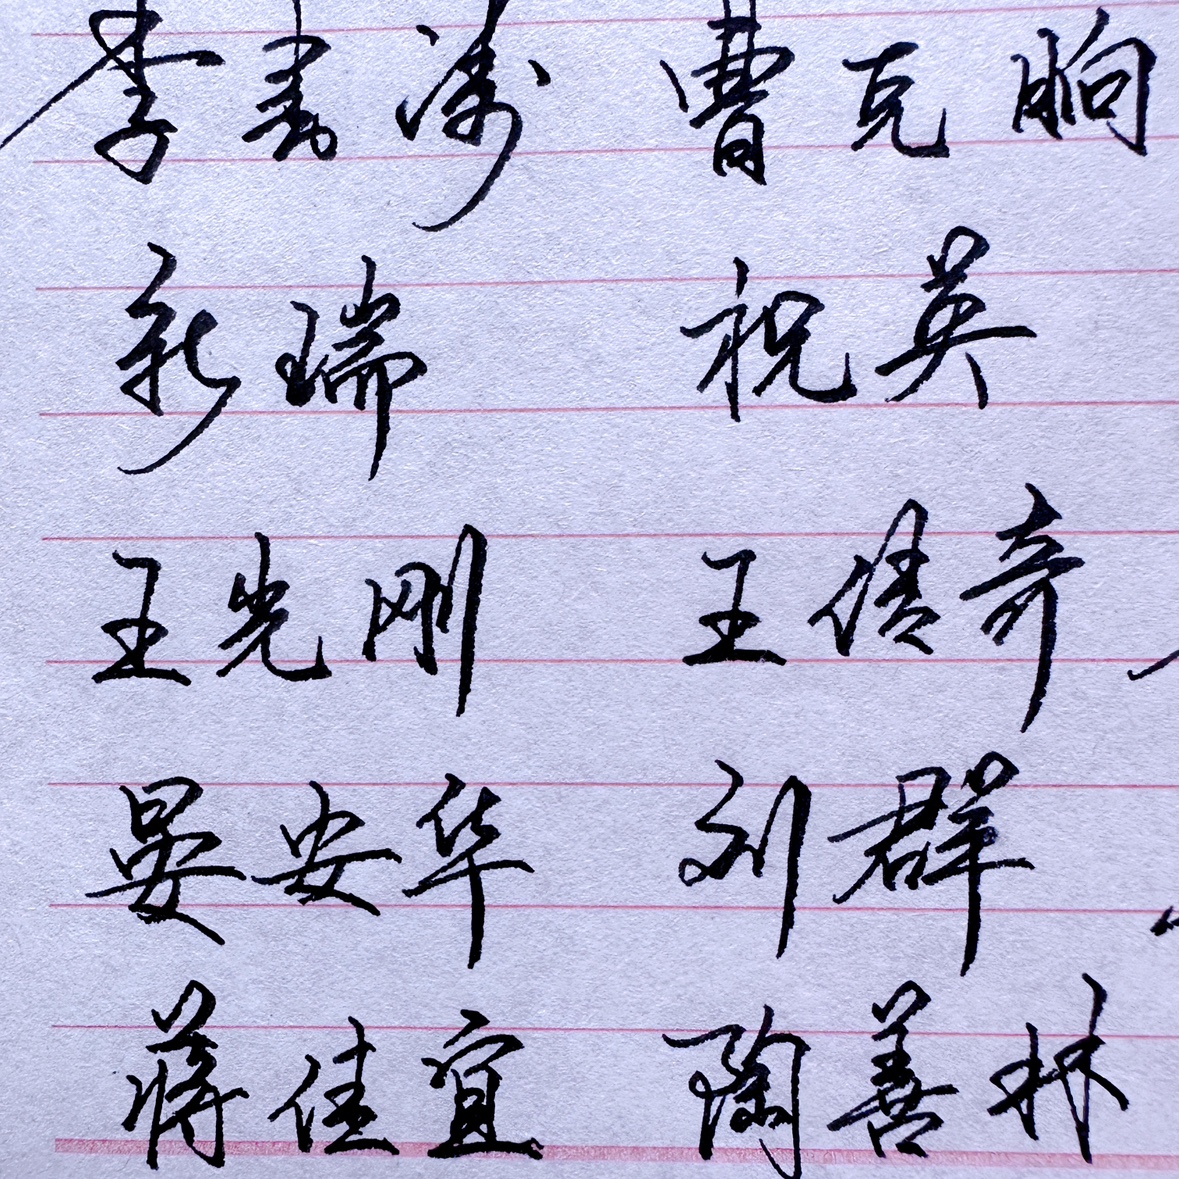 李素涛 曹克晌
新瑞 祝英
王光刚 王倩奇
晏安华 刘群
蒋佳宜 陶善林